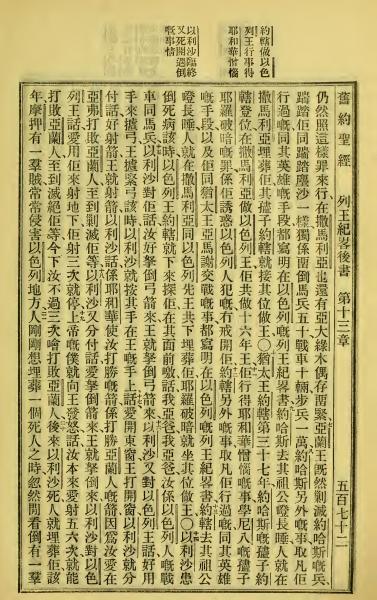 舊約聖經 列王紀畧後書 第十三章 五百七十二
約轄做以色
列王行事得
耶和華憎惱
以利沙臨終
又死開遇倒
嘅事情
仍然照這樣罪來行在撒馬利亞也還有亞大綠木偶存緊亞蘭王旣然剿滅約哈斯嘅兵、
踹踏佢同踹踏塵沙一樣獨係倒馬兵五十戰車十輛步兵一萬約哈斯另外嘅事取凡佢
行過嘅同其英雄嘅手段都寫明在以色列嘅列王紀畧書約哈斯去其祖公長睡人就在
撒馬利亞埋葬佢其子約轄就接其位做王〇猶太王約轄第三十七年約哈斯嘅子約
轄登位在撒馬利亞做以色列王佢共做十六年王佢行得耶和華憎惱嘅事學尼八嘅子
耶羅破暗嘅罪係佢誘惑以色列人犯嘅冇戒開佢約轄另外嘅事取凡佢行過嘅同其英雄
嘅手段以及佢同猶太王亞馬謝交戰嘅事都寫明在以色列嘅列王紀畧書約轄去其祖公
長睡人就在撒馬利亞同以色列先王共下埋葬佢耶羅破暗就坐其位做王〇以利沙患
倒死病該時以色列王約轄就下來探佢在其面前噭話我亞爸我亞爸汝係以色列人嘅戰
車同馬兵以利沙對佢話汝好拏倒弓箭來王就拏倒弓箭來以利沙又對以色列王話好用
手來弓王緊弓該時以利沙就按其手在王嘅手上話愛開東窗王打開窗以利沙就分
付話好射箭王就射箭以利沙話係耶和華使汝打勝嘅箭係打勝亞蘭人嘅箭因爲汝愛在
亞弗打敗亞蘭人至到剿滅佢等以利沙又分付話愛拏倒箭來王就拏倒來以利沙對以色
列王話愛用佢來射地下佢射三次就停上帝嘅僕就向王發怒話汝本來愛射五六次就能
打敗亞蘭人至到滅絕佢等今下汝不過三次會打敗亞蘭人後來以利沙死人就埋葬佢該
年摩押有一羣賊常常侵害以色列地方人剛剛想埋葬一個死人之時忽然間看倒有一羣